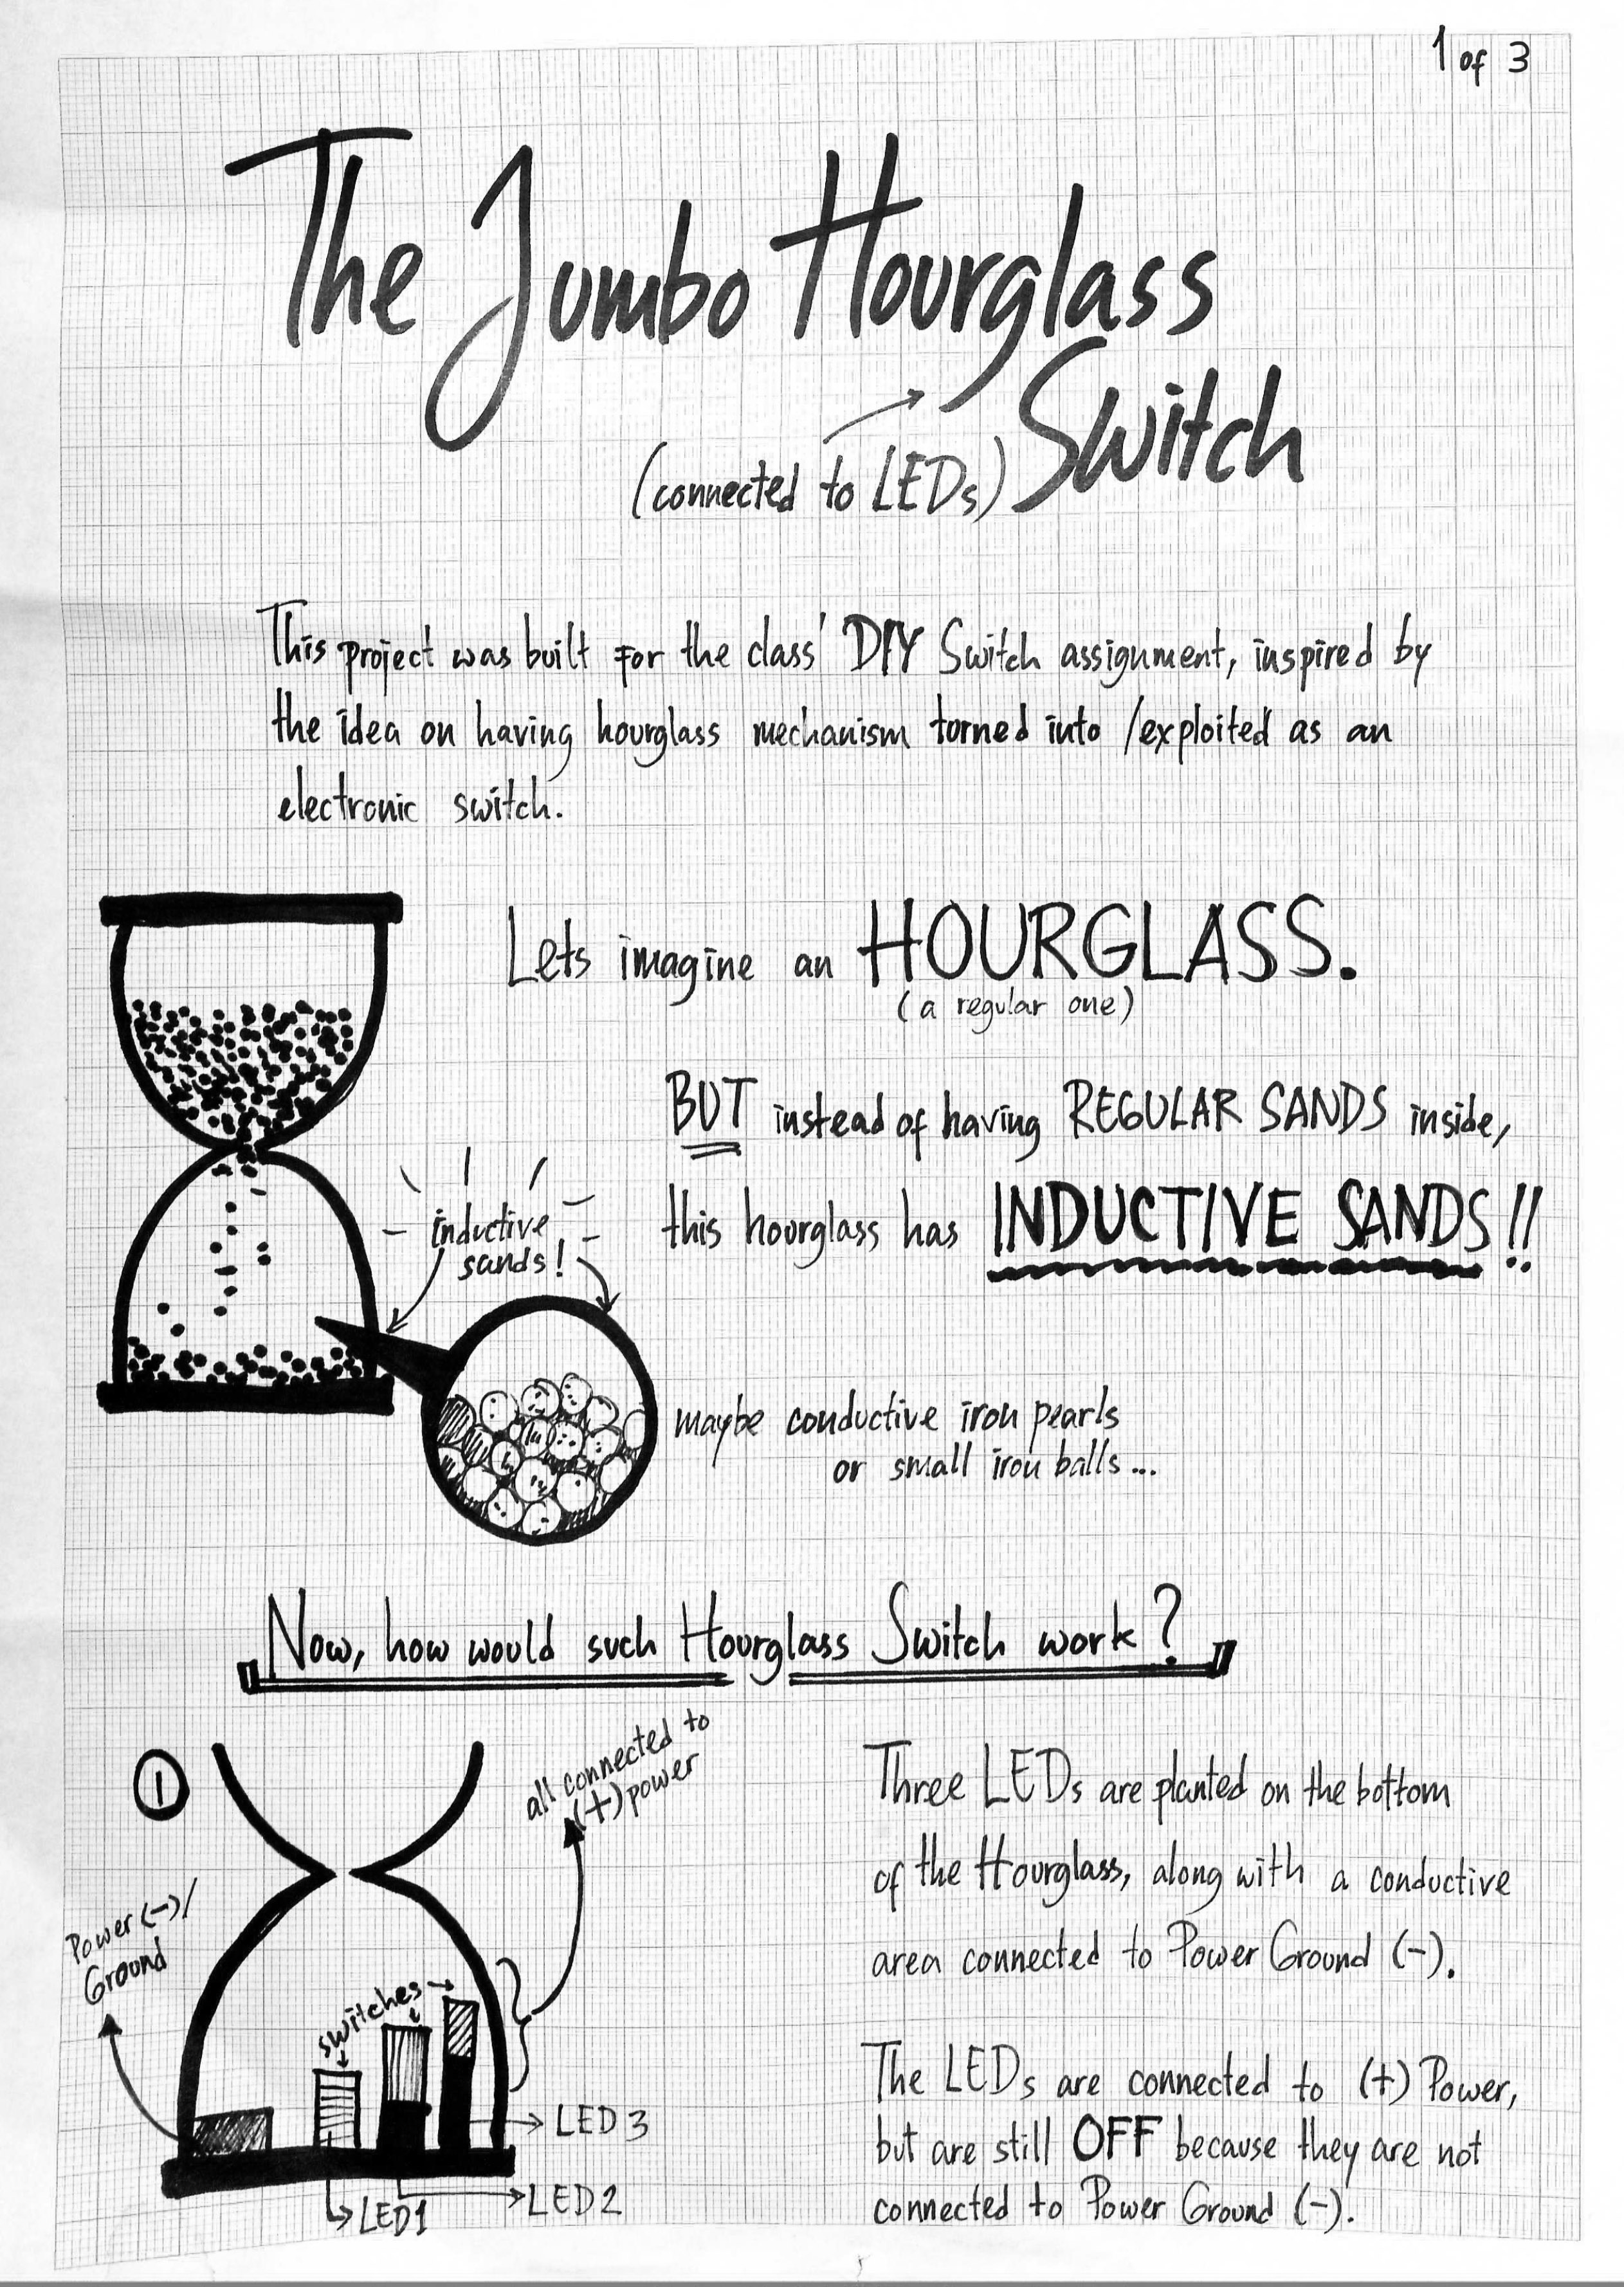 1 of 3
The Jumbo Hourglass
Switch
(connected to LEDs)
This project was built for the class' DIY Switch assignment, inspired by
the idea on having hourglass mechanism torned into /exploited as an
electronic switch.
Lets imagine an HOURGLASS.
(a regular one)
BUT instead of having REGULAR SANDS inside,
this hourglass has INDUCTIVE SANDS!!
inductive
sands!
maybe conductive iron pearls
or small iron balls...
Now, how would such Hourglass Switch work?
1
all connected to
(+) power
Power (-)/
Ground
switches
LED 3
LED 2
LED1
Three LEDs are planted on the bottom
of the Hourglass, along with a conductive
area connected to Power Ground (-).
The LEDs are connected to (+) Power,
but are still OFF because they are not
connected to Power Ground (-).